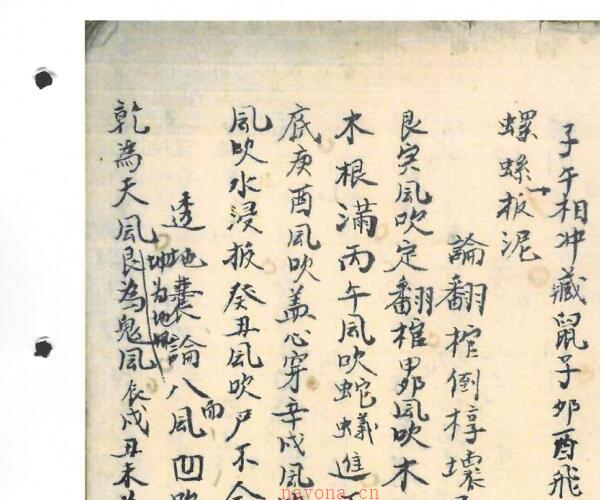 子午相冲藏鼠子卯酉飛
螺螄板泥
論翻棺倒椁壞
艮寅風吹定翻棺甲卯風吹木
木根滿丙午風吹蛇蟻進
底庚酉風吹盖心穿辛戌風
風吹水浸板癸丑風吹尸不
透地囊論八面風凹吹
坤为地風
乾為天風艮為鬼風辰戌丑未
nayona.cn